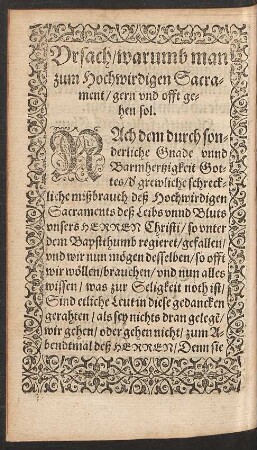 Vrsach/warumb man
zum Hochwirdigen Sacra-
ment/gern vnd offt ge-
hen sol.
NAch dem durch son-
derliche Gnade vnnd
Barmhertzigkeit Got-
tes/d' grewliche schreck-
liche mißbrauch deß Hochwirdigen
Sacraments deß Leibs vnnd Bluts
vnsers HERREN Christi/so vnter
dem Bapsthumb regieret/gefallen/
vnd wir nun mögen desselben/so offt
wir wöllen/brauchen/vnd nun alles
wissen/was zur Seligkeit noth ist/
Sind etliche Leut in diese gedancken
gerahten/als sey nichts dran gelegẽ/
wir gehen/oder gehen nicht/zum A-
bendtmal deß HERREN/Denn sie